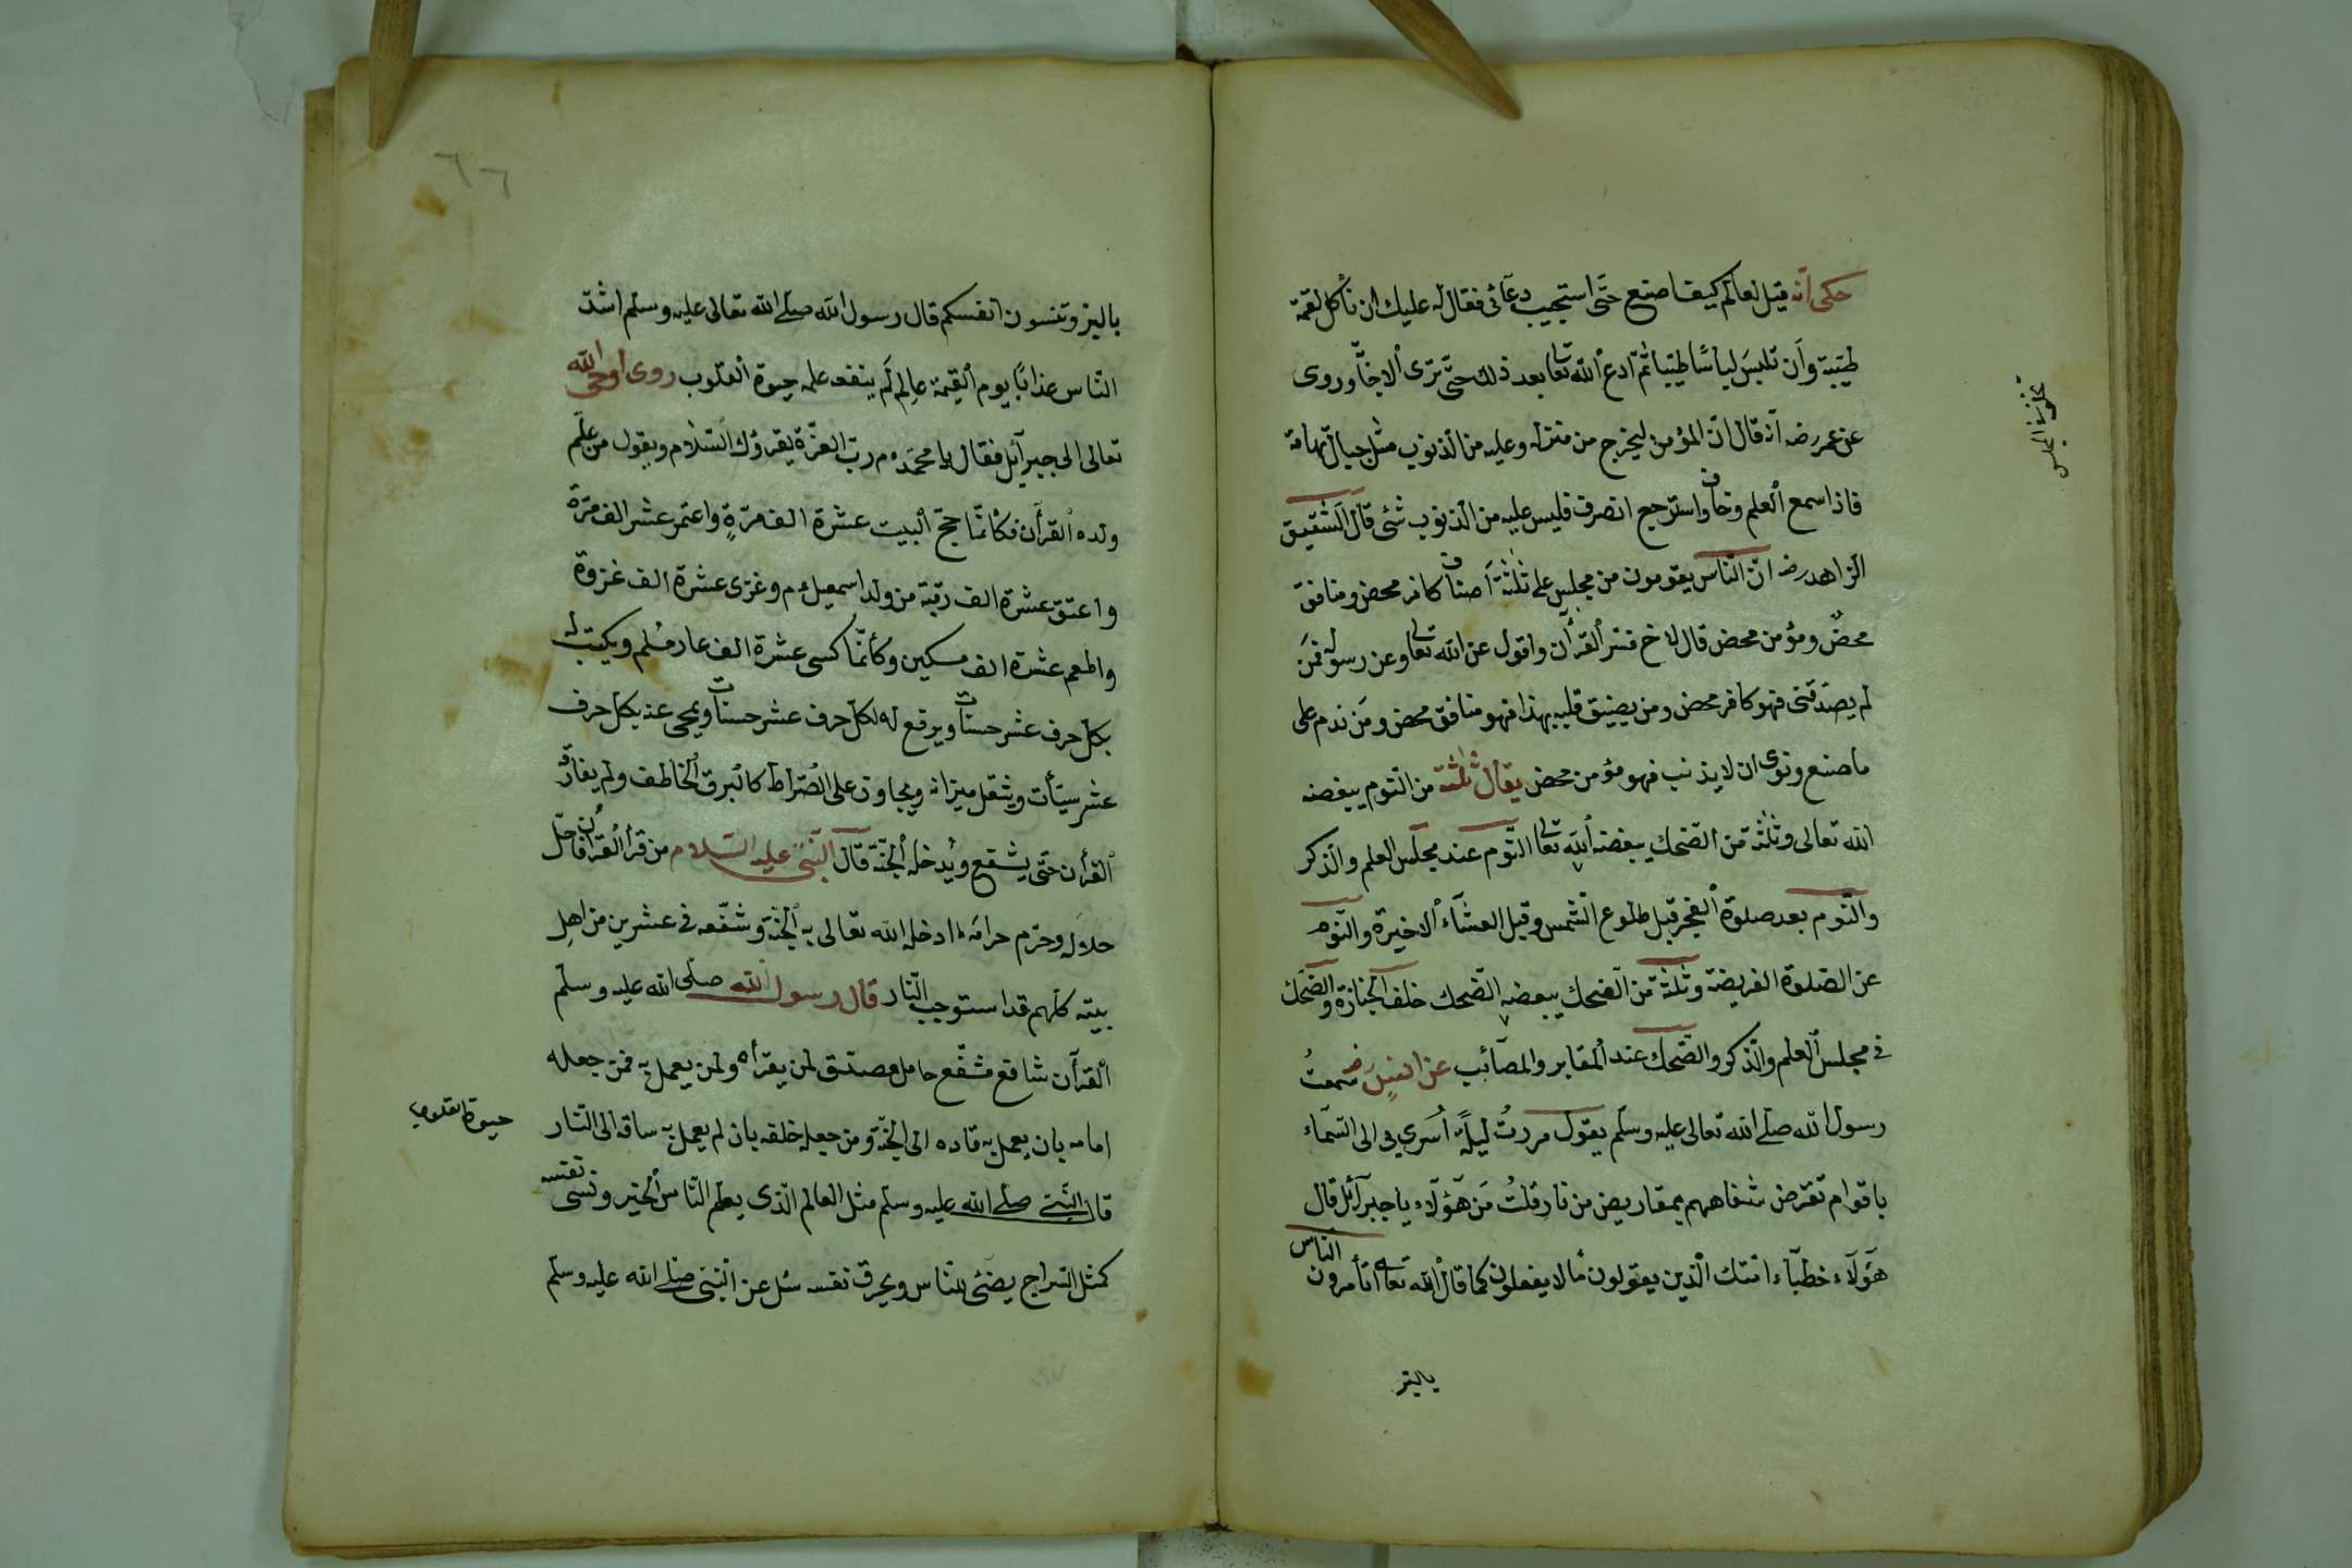 حكى انّه قيل لعالم كيف اصنع حتّى استجيب دعائى فقال له عليك ان تأكل لقمة
طيّبة وأن تلبس لباسًا طيّبا ثمّ ادع الله تعا بعد ذلك حتّى ترى الاجابة وروى
عن عمر رضه انّه قال انّ المؤمن ليخرج من منزله وعليه من الذنوب مثل جبال تهامة
فاذا سمع العلم وخاف واسترجع انصرف فليس عليه من الذنوب شئ قال الشقيق
الزاهد رضه انّ النّاس يقومون من مجلس على ثلثة أصناف كافر محض ومنافق
محضٌ ومؤمن محض قال لانى فسّر القرأن واقول عن الله تعالى وعن رسوله فمن
لم يصدّقنى فهو كافر محض ومن يضيق قلبه بهذا فهو منافق محض ومَن ندم على
ما صنع ونوى ان لا يذنب فهو مؤمن محض يقال ثلثة من النّوم يبغضه
الله تعالى وثلثة من الضّحك يبغضه الله تعا النّوم عند مجلس العلم والذّكر
والنّوم بعد صلوة الفجر قبل طلوع الشّمس وقبل العشآء الاخيرة والنّوم
عن الصّلوة الفريضة وثلثة من الضحك يبغضه الضّحك خلف الجنازة والضّحك
فى مجلس العلم والذّكر والضّحك عند المقابر والمصآئب عن انسٍ رضه سمعتُ
رسول الله صلّى الله تعالى عليه وسلّم يقول مررتُ ليلةً أسرى بى الى السّمآء
باقوام تقرض شفاههم بمقاريض من نار قلتُ مَن هؤلآء يا جبرآئل قال
هؤلآء خطبآء امّتك الّذين يقولون ما لا يفعلون كما قال الله تعالى اتأمرون النّاس
بالبرّ
بالبرّ وتنسون انفسكم قال رسول الله صلّى الله تعالى عليه وسلّم اشدّ
النّاس عذابًا يوم القيمة عالِم لَم ينفعه علمه حيوة القلوب روى اوحى الله
تعالى الى جبرآئل فقال يا محمّد ءم ربّ العزّة يقرؤك السّلام ويقول من علّم
ولده القرأن فكأنّما حجّ البيت عشرة الف مرّةٍ واعتمر عشر الف مرّة
واعتق عشرة الف رقبة من ولد اسمعيل ءم وغزى عشرة الف غزوة
واطعم عشرة الف مسكين وكأنّما كسى عشرة الف عار مسلم ويكتب له
بكلّ حرف عشر حسنات ويرفع له لكلّ حرف عشر حسنات ويمحى عنه بكلّ حرف
عشر سيّأت ويثقل ميزانه ويجاوز على الصّراط كالبرق الخاطف ولم يفارقه
القرأن حتّى يشفع ويُدخله الجنّة قال النّبىّ عليه السّلام من قرأ القرأن فاحلّ
حلاله وحرّم حرامه ادخله الله تعالى به الجنّة وشفّعه فى عشرين من اهل
بيته كلّهم قد استوجب النّار قال رسول الله صلّى الله عليه وسلّم
القرآن شافع مشفّع حامل مصدّق لمن يقرأه ولمن يعمل به فمن جعله
امامه بان يعمل به قاده الى الجنّة ومن جعله خلفه بان لم يعمل به ساقه الى النّار
حيوة القلوب
قال النّبىّ صلّى الله عليه وسلّم مثل العالم الّذى يعلّم النّاس الخير ونسى نفسه
كمثل السّراج يضئ للنّاس ويحرق نفسه سئل عن النّبىّ صلّى الله عليه وسلّم
٦٦